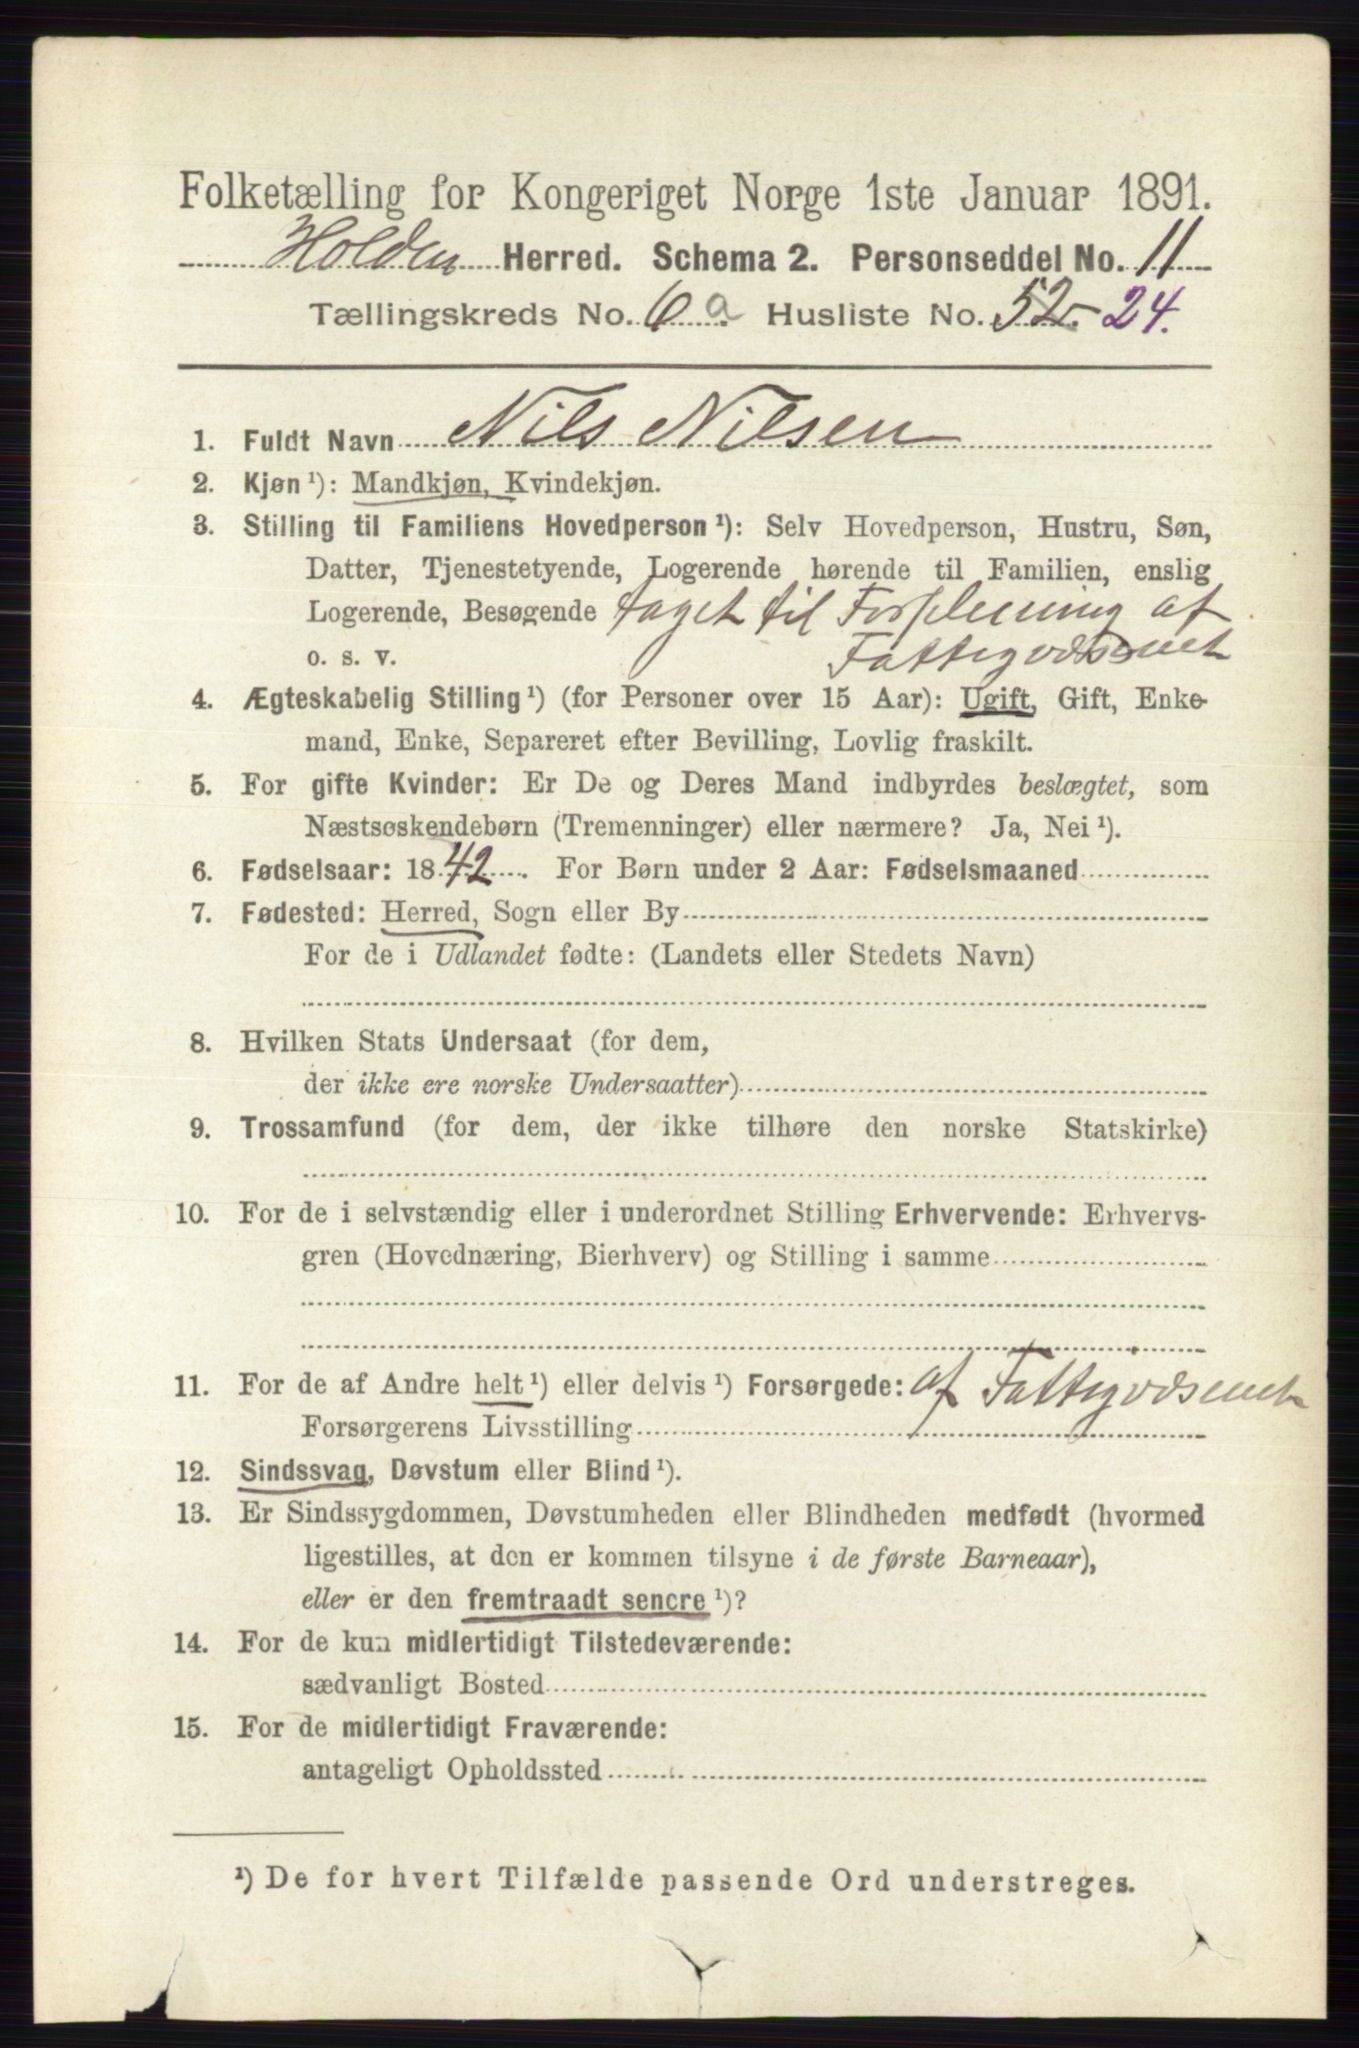 Folketælling for Kongeriget Norge 1ste Januar 1891.
Holden Herred. Schema 2. Personseddel No. 11
Tællingskreds No. 6 a Husliste No. 52. 24.
1. Fuldt Navn Nils Nilsen
2. Kjøn¹): Mandkjøn, Kvindekjøn.
3. Stilling til Familiens Hovedperson¹): Selv Hovedperson, Hustru, Søn,
Datter, Tjenestetyende, Logerende hørende til Familien, enslig
Logerende, Besøgende taget til Forpleining af
o. s. v. Fattigvæsenet
4. Ægteskabelig Stilling¹) (for Personer over 15 Aar): Ugift, Gift, Enke-
mand, Enke, Separeret efter Bevilling, Lovlig fraskilt.
5. For gifte Kvinder: Er De og Deres Mand indbyrdes beslægtet, som
Næstsøskendebørn (Tremenninger) eller nærmere? Ja, Nei¹).
6. Fødselsaar: 1842. For Børn under 2 Aar: Fødselsmaaned
7. Fødested: Herred, Sogn eller By
For de i Udlandet fødte: (Landets eller Stedets Navn)
8. Hvilken Stats Undersaat (for dem,
der ikke ere norske Undersaatter)
9. Trossamfund (for dem, der ikke tilhøre den norske Statskirke)
10. For de i selvstændig eller i underordnet Stilling Erhvervende: Erhvervs-
gren (Hovednæring, Bierhverv) og Stilling i samme
11. For de af Andre helt¹) eller delvis¹) Forsørgede: af Fattigvæsenet
Forsørgerens Livsstilling
12. Sindssvag, Døvstum eller Blind¹).
13. Er Sindssygdommen, Døvstumheden eller Blindheden medfødt (hvormed
ligestilles, at den er kommen tilsyne i de første Barneaar),
eller er den fremtraadt senere¹)?
14. For de kun midlertidigt Tilstedeværende:
sædvanligt Bosted
15. For de midlertidigt Fraværende:
antageligt Opholdssted
¹) De for hvert Tilfælde passende Ord understreges.